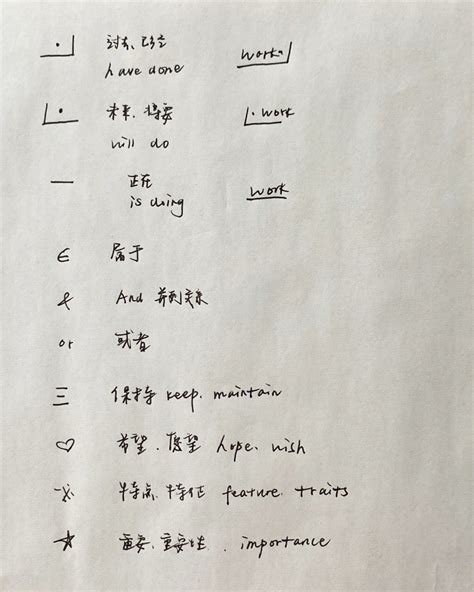 过去、已经 work
have done
未来、将要 work
will do
正在 work
is doing
∈ 属于
& And 并列关系
or 或者
三 保持 keep. maintain
♡ 希望、愿望 hope. wish
特点、特征 feature. traits
☆ 重要、重要性. importance